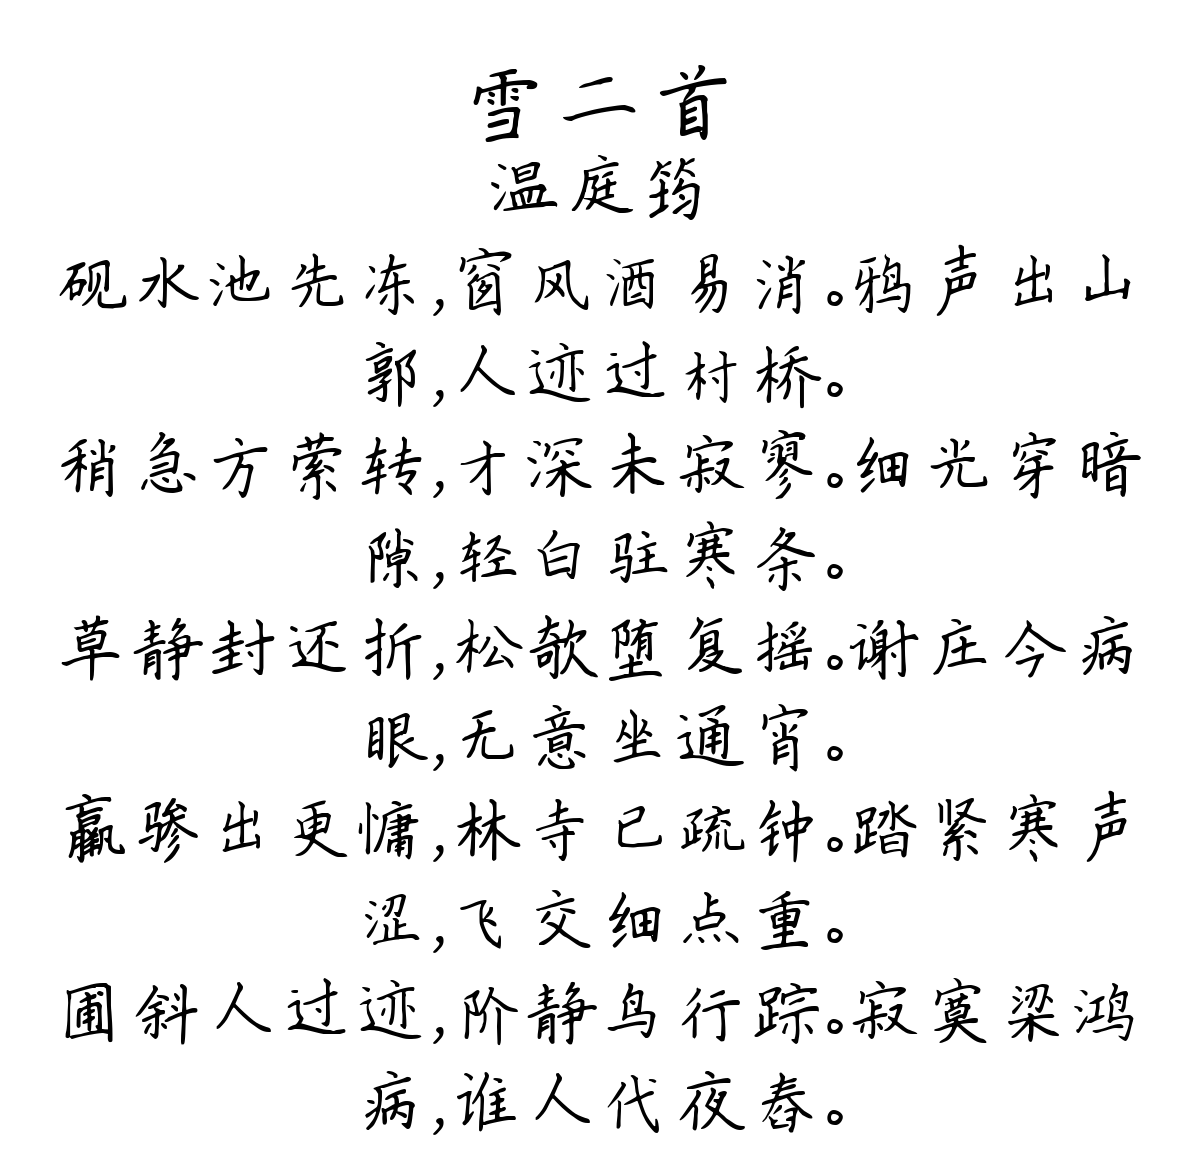 雪二首
温庭筠
砚水池先冻,窗风酒易消。鸦声出山
郭,人迹过村桥。
稍急方萦转,才深未寂寥。细光穿暗
隙,轻白驻寒条。
草静封还折,松欹堕复摇。谢庄今病
眼,无意坐通宵。
羸骖出更慵,林寺已疏钟。踏紧寒声
涩,飞交细点重。
圃斜人过迹,阶静鸟行踪。寂寞梁鸿
病,谁人代夜舂。